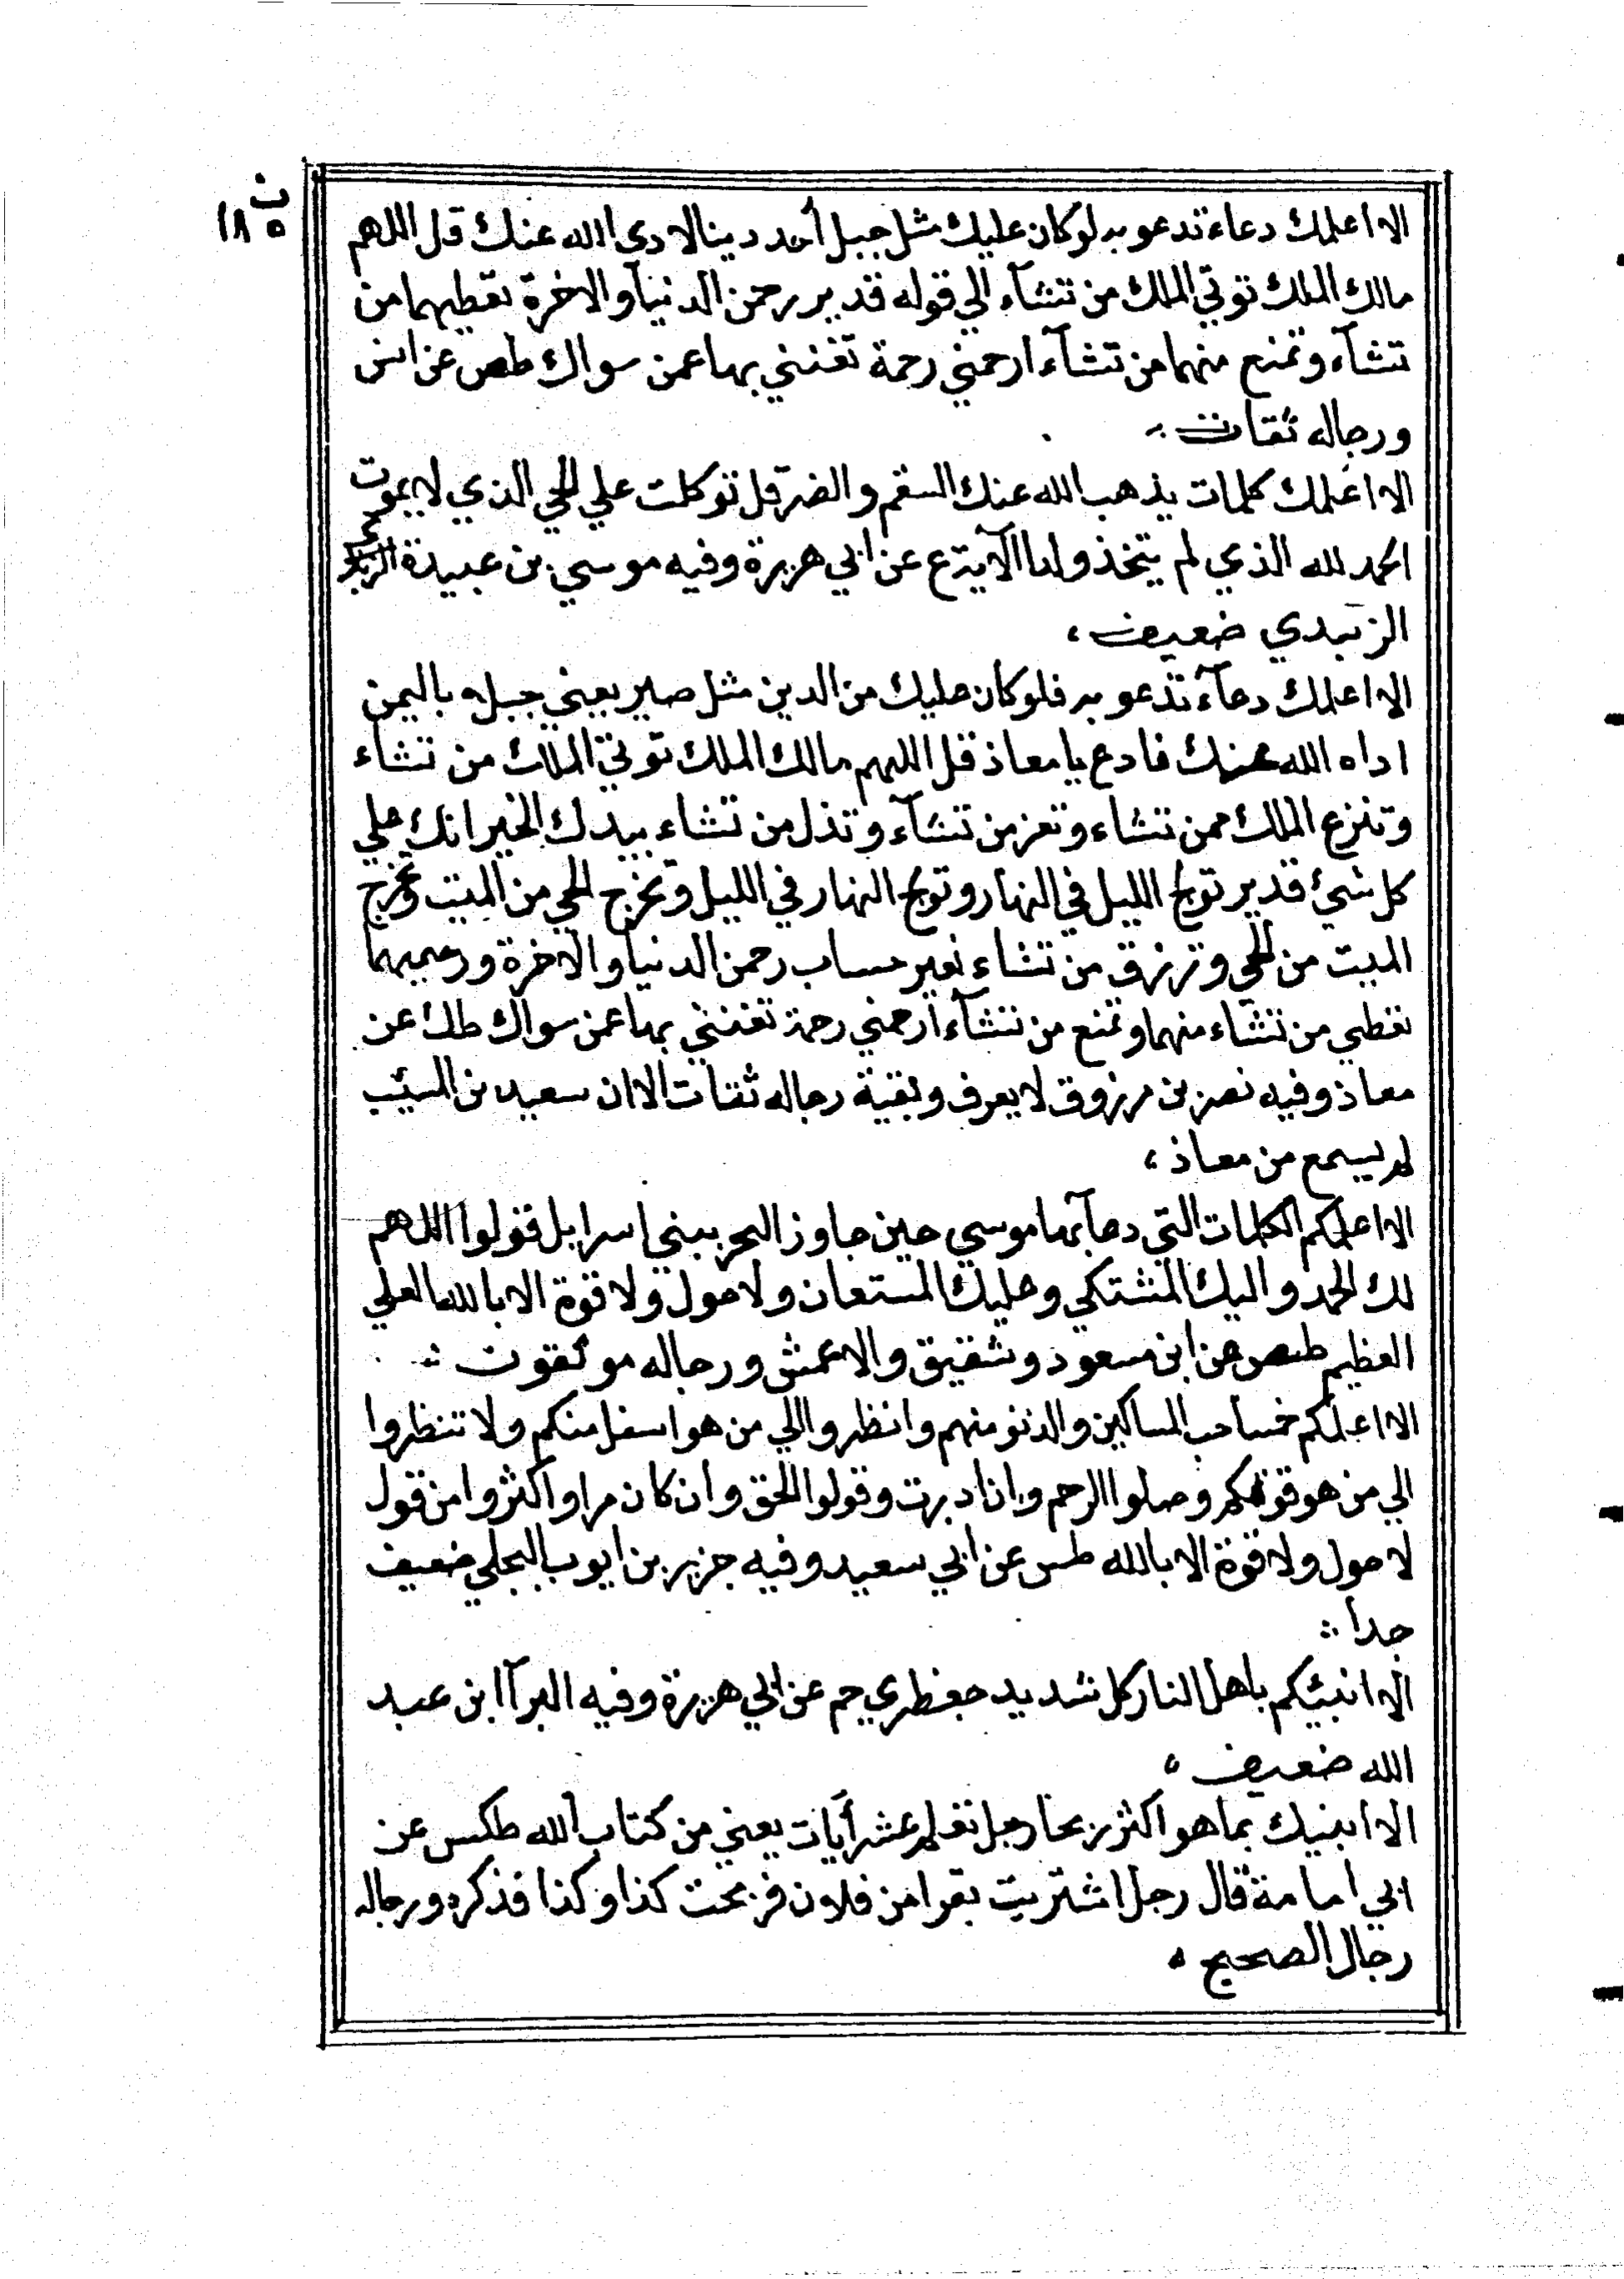 ن
١٨٥
الا اعلمك دعاء تدعو به لو كان عليك مثل جبل أحد دينا لادى الله عنك قل اللهم
مالك الملك توتي الملك من تشآء الي قوله قدير رحمن الدنيا والاخرة تعطيهما من
تشآء وتمنع منهما من تشآء ارحمني رحمة تغنني بها عمن سواك طص عن انس
ورجاله ثقات
الا اعلمك كلمات يذهب الله عنك السقم والضر قل توكلت علي الحي الذي لا يموت
الحمد لله الذي لم يتخذ ولدا الآية ع عن ابي هريرة وفيه موسي بن عبيدة
الزبيدي ضعيف ،
الا اعلمك دعآء تدعو به فلو كان عليك من الدين مثل صبير يعني جبل باليمن
اداه الله عنك فادع يا معاذ قل اللهم مالك الملك توتي الملك من تشاء
وتنزع الملك ممن تشاء وتعز من تشآء وتذل من تشاء بيدك الخير انك علي
كل شيئ قدير تولج الليل في النهار وتولج النهار في الليل وتخرج الحي من الميت وتخرج
الميت من الحي وترزق من تشاء بغير حساب رحمن الدنيا والاخرة ورحيمهما
تعطي من تشآء منهما وتمنع من تشآء ارحمني رحمة تغنني بها عمن سواك طك عن
معاذ وفيه نصر بن مرزوق لا يعرف وبقية رجاله ثقات الا ان سعيد بن المسيب
لم يسمع من معاذ ،
الا اعلمكم الكلمات التي دعا بها موسي حين جاوز البحر ببني اسرايل قولوا اللهم
لك الحمد واليك المشتكي وعليك المستعان ولا حول ولا قوة الا بالله العلي
العظيم طص عن ابن مسعود وشقيق والاعمش ورجاله موثقون
الا اعلمكم خمسا حب المساكين والدنو منهم وانظروا الي من هو اسفل منكم ولا تنظروا
الي من هو فوقكم وصلوا الرحم وان ادبرت وقولوا الحق وان كان مرا واكثروا من قول
لا حول ولا قوة الا بالله طس عن ابي سعيد وفيه جرير بن ايوب البجلي ضعيف
جدا
الا انبئكم باهل النار كل شديد جعظري حم عن ابي هريرة وفيه البرآ ابن عبد
الله ضعيف ،
الا انبيك بما هو اكثر ربحا رجل تعلم عشر آيات يعني من كتاب الله طكس عن
ابي امامة قال رجل اشتريت بقرا من فلان فربحت كذا وكذا فذكره ورجاله
رجال الصحيح